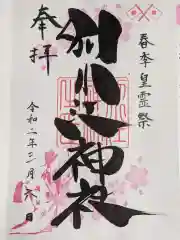 奉拝
春季皇霊祭
別小江神社
令和二年三月廿日